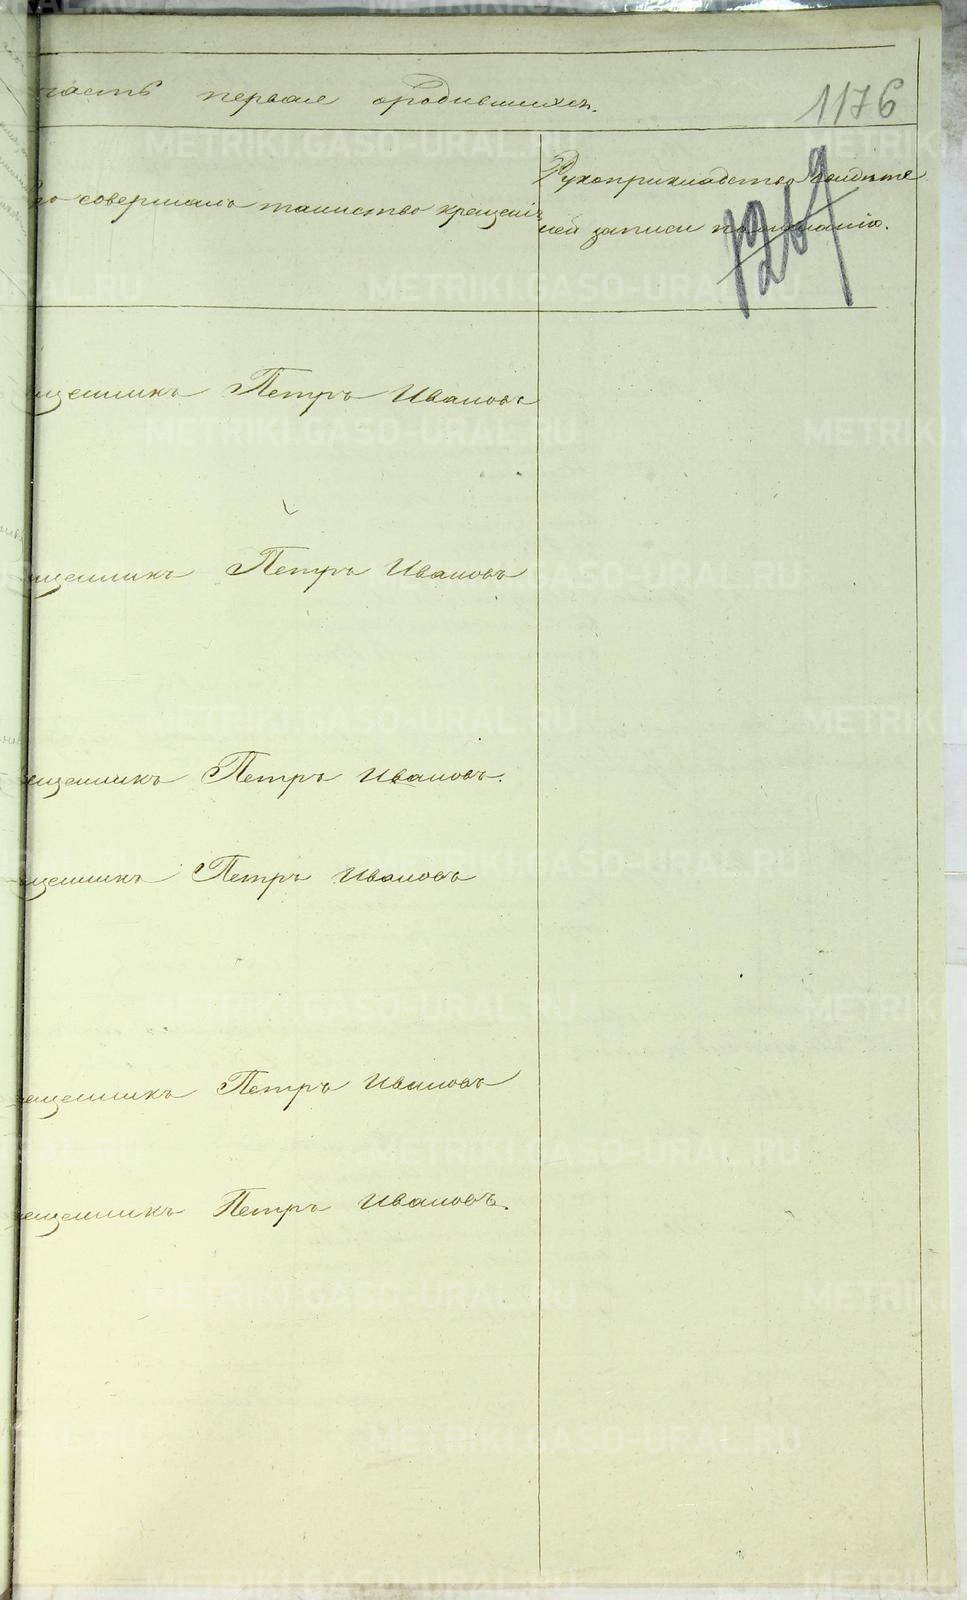 часть первая о родившихся.
1176
Кто совершалъ таинство крещенія
Рукоприкладство свидѣте
лей записи по желанію.
1269
щенникъ Петръ Ивановъ
щенникъ Петръ Ивановъ
ещенникъ Петръ Ивановъ.
щенникъ Петръ Ивановъ
ещенникъ Петръ Ивановъ
ещенникъ Петръ Ивановъ.
METRIKI.GASO-URAL.RU